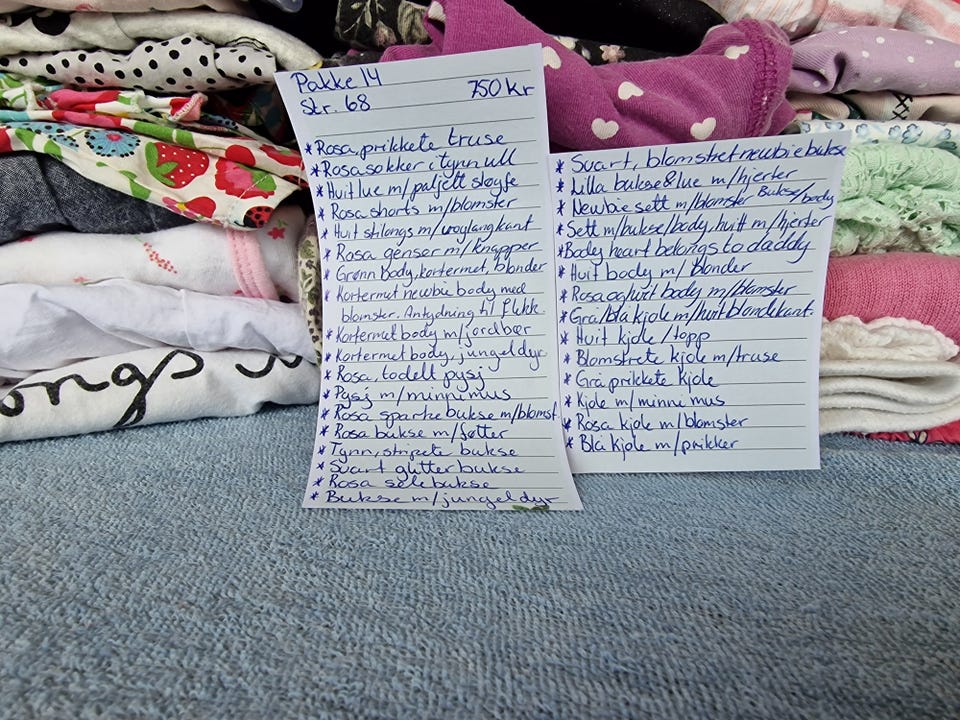 Pakke 14
Str. 68 750 kr
* Rosa, prikkete truse
* Rosa sokker i tynn ull
* Hvit lue m/paljett sløyfe
* Rosa shorts m/blomster
* Hvit stilongs m/uoglangkant
* Rosa genser m/knapper
* Grønn Body, kortermet, blonder
* Kortermet newbie body med
blomster. Antydning til flekk.
* Kortermet body m/jordbær
* Kortermet body, jungeldyr
* Rosa, todelt pysj
* Pysj m/minni mus
* Rosa sparkebukse m/blomst
* Rosa bukse m/føtter
* Tynn, stripete bukse
* Svart glitter bukse
* Rosa selebukse
* Bukse m/jungeldyr
* Svart, blomstret newbie bukse
* Lilla bukse & lue m/hjerter
* Newbie sett m/blomster Bukse/body
* Sett m/bukse/body, hvitt m/hjerter
* Body heart belongs to daddy
* Hvit body m/blonder
* Rosa og hvit body m/blomster
* Grå/blå kjole m/hvit blondekant.
* Hvit kjole/topp
* Blomstrete kjole m/truse
* Grå prikkete kjole
* Kjole m/minni mus
* Rosa kjole m/blomster
* Blå kjole m/prikker
ongs